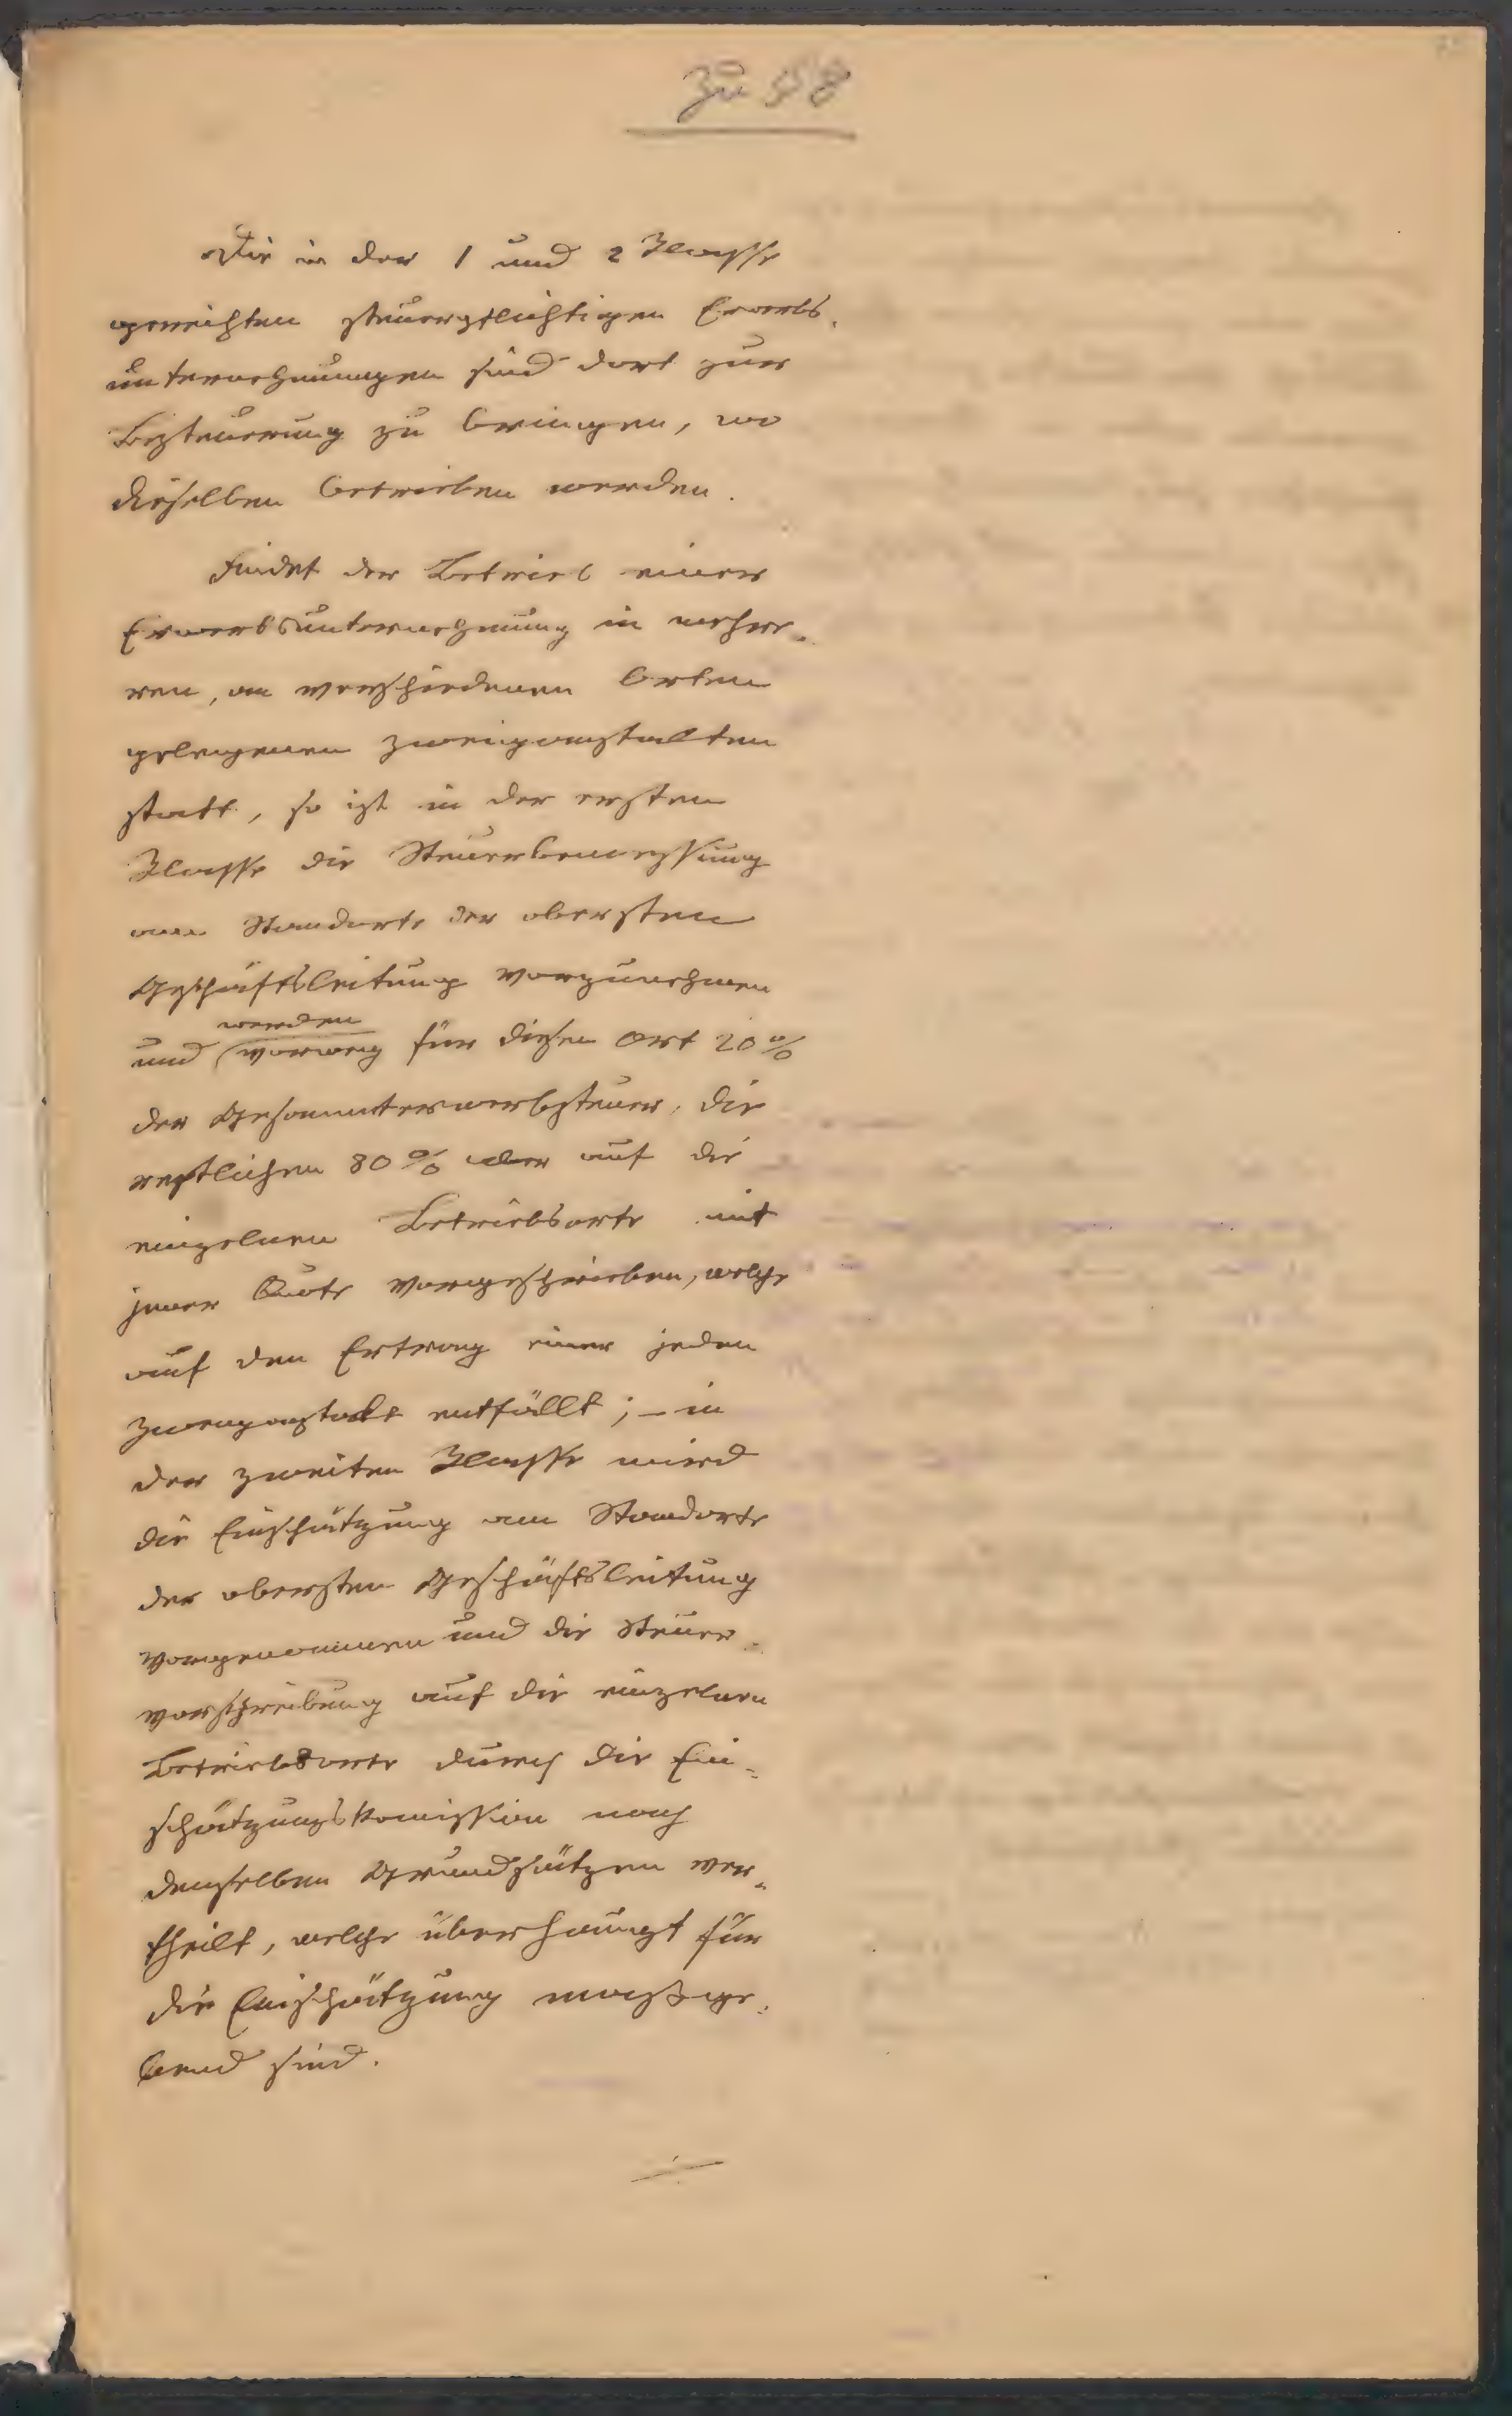 zu 58
Die in der 1 und 2 Klasse
gereihten steuerpflichtigen Erwerbs-
unternehmungen sind dort zur
Besteuerung zu bringen, wo
dieselben betrieben werden.
Findet der Betrieb einer
Erwerbsunternehmung in mehre-
ren, an verschiedenen Orten
gelegenen Zweiganstalten
statt, so ist in der ersten
Klasse die Steuerbemessung
am Standorte der obersten
Geschäftsleitung vorzunehmen
werden
und vorweg für diesen Ort 20%
der Gesammterwerbsteuer, die
restlichen 80% aber auf die
einzelnen Betriebsorte mit
jener Quote vorgeschrieben, welche
auf den Ertrag einer jeden
Zweiganstalt entfällt; – in
der zweiten Klasse wird
die Einschätzung am Standorte
der obersten Geschäftsleitung
vorgenommen und die Steuer-
vorschreibung auf die einzelnen
Betriebsorte durch die Ein-
schätzungskomission nach
denselben Grundsätzen ver-
theilt, welche überhaupt für
die Einschätzung maßge-
bend sind.